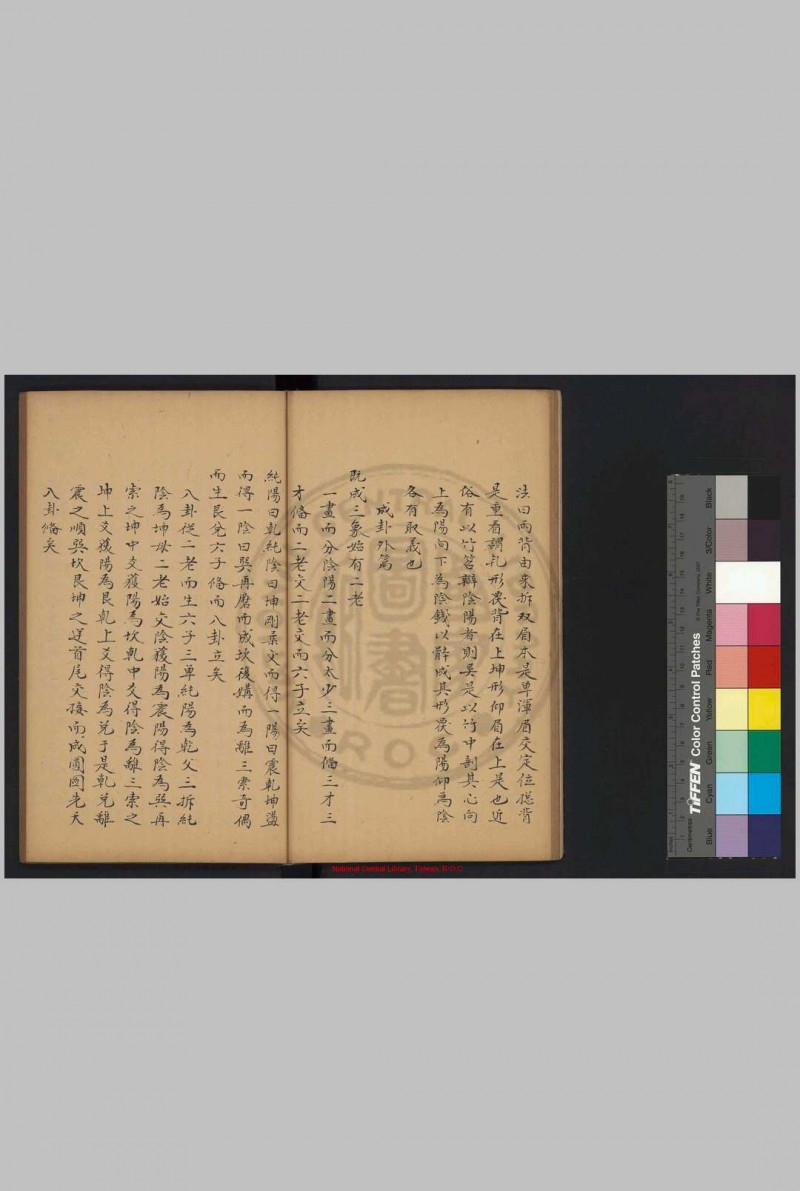 法曰兩背由來拆双眉本是单渾眉交定位總背
是重有謂乾形覆背在上坤形仰眉在上是也近
俗有以竹筶辯陰陽者則異是以竹中剖其心向
上為陽向下為陰錢以骸成其形覆為陽仰為陰
各有取義也
成卦外篇
既成三象始有二老
一畫而分陰陽二畫而分太少三畫而俻三才三
才俻而二老交二老交而六子立矣
純陽曰乾純陰曰坤剛柔交而得一陽曰震乾坤盪
而得一陰曰巽再磨而成坎復媾而為離三索奇偶
而生艮兌六子俻而八卦立矣
八卦從二老而生六子三单純陽為乾父三拆純
陰為坤母二老始交陰獲陽為震陽得陰為巽再
索之坤中爻獲陽為坎乾中爻得陰為離三索之
坤上爻獲陽為艮乾上爻得陰為兌于是乾兌離
震之順巽坎艮坤之逆首尾交接而成圓圖先天
八卦俻矣
National Central Library, Taiwan, R.O.C
圖書
ROC
TIFFEN Color Control Patches
© The Tiffen Company, 2007
Inches
Centimetres
Blue
Cyan
Green
Yellow
Red
Magenta
White
3/Color
Black